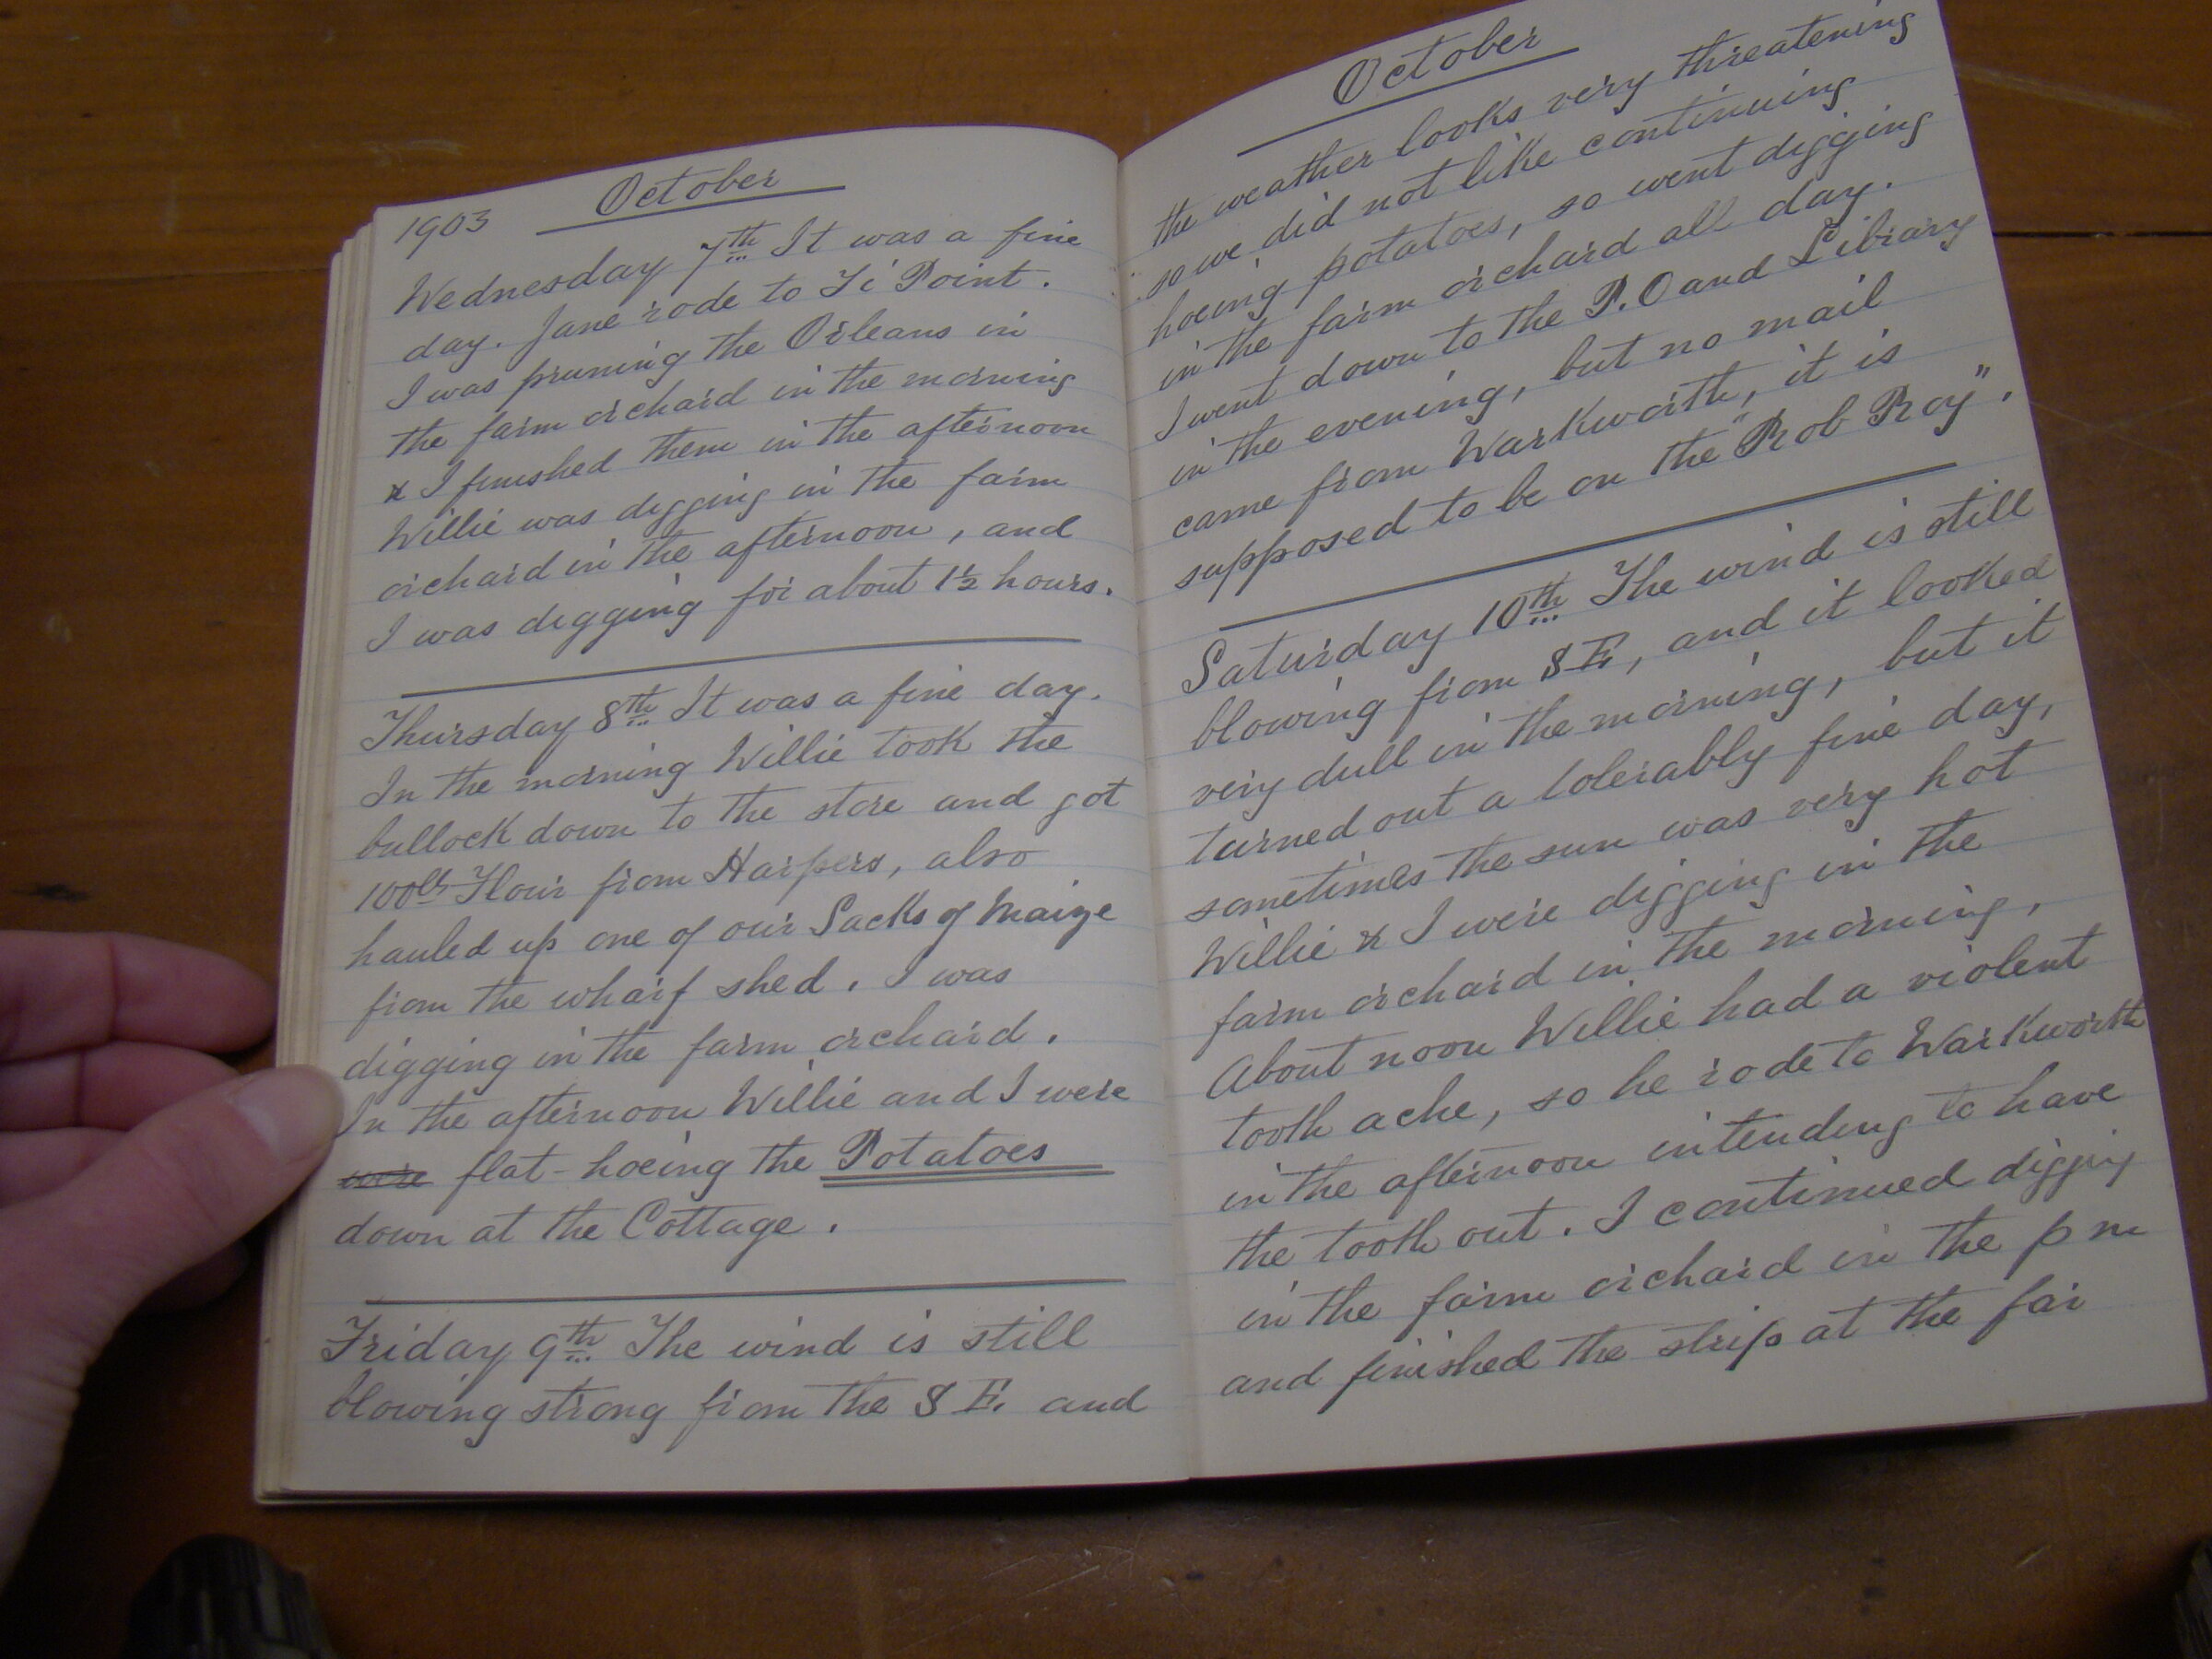 1903 October
Wednesday 7th It was a fine
day. Jane rode to Ti Point.
I was pruning the Orleans in
the farm orchard in the morning
& I finished them in the afternoon
Willie was digging in the farm
orchard in the afternoon, and
I was digging for about 1½ hours.
Thursday 8th It was a fine day.
In the morning Willie took the
bullock down to the store and got
100lb Flour from Harpers, also
hauled up one of our Sacks of Maize
from the wharf shed. I was
digging in the farm orchard.
In the afternoon Willie and I were
were flat-hoeing the Potatoes
down at the Cottage.
Friday 9th The wind is still
blowing strong from the S E. and
October
the weather looks very threatening
so we did not like continuing
hoeing potatoes, so went digging
in the farm orchard all day.
I went down to the P.O and Library
in the evening, but no mail
came from Warkworth, it is
supposed to be on the "Rob Roy".
Saturday 10th The wind is still
blowing from S E, and it looked
very dull in the morning, but it
turned out a tolerably fine day,
sometimes the sun was very hot
Willie & I were digging in the
farm orchard in the morning,
About noon Willie had a violent
tooth ache, so he rode to Warkworth
in the afternoon intending to have
the tooth out. I continued digging
in the farm orchard in the p m
and finished the strip at the far